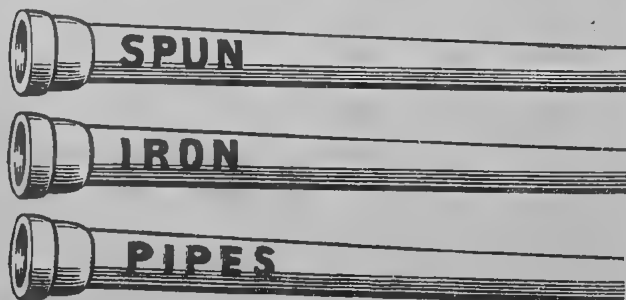 SPUN
IRON
PIPES